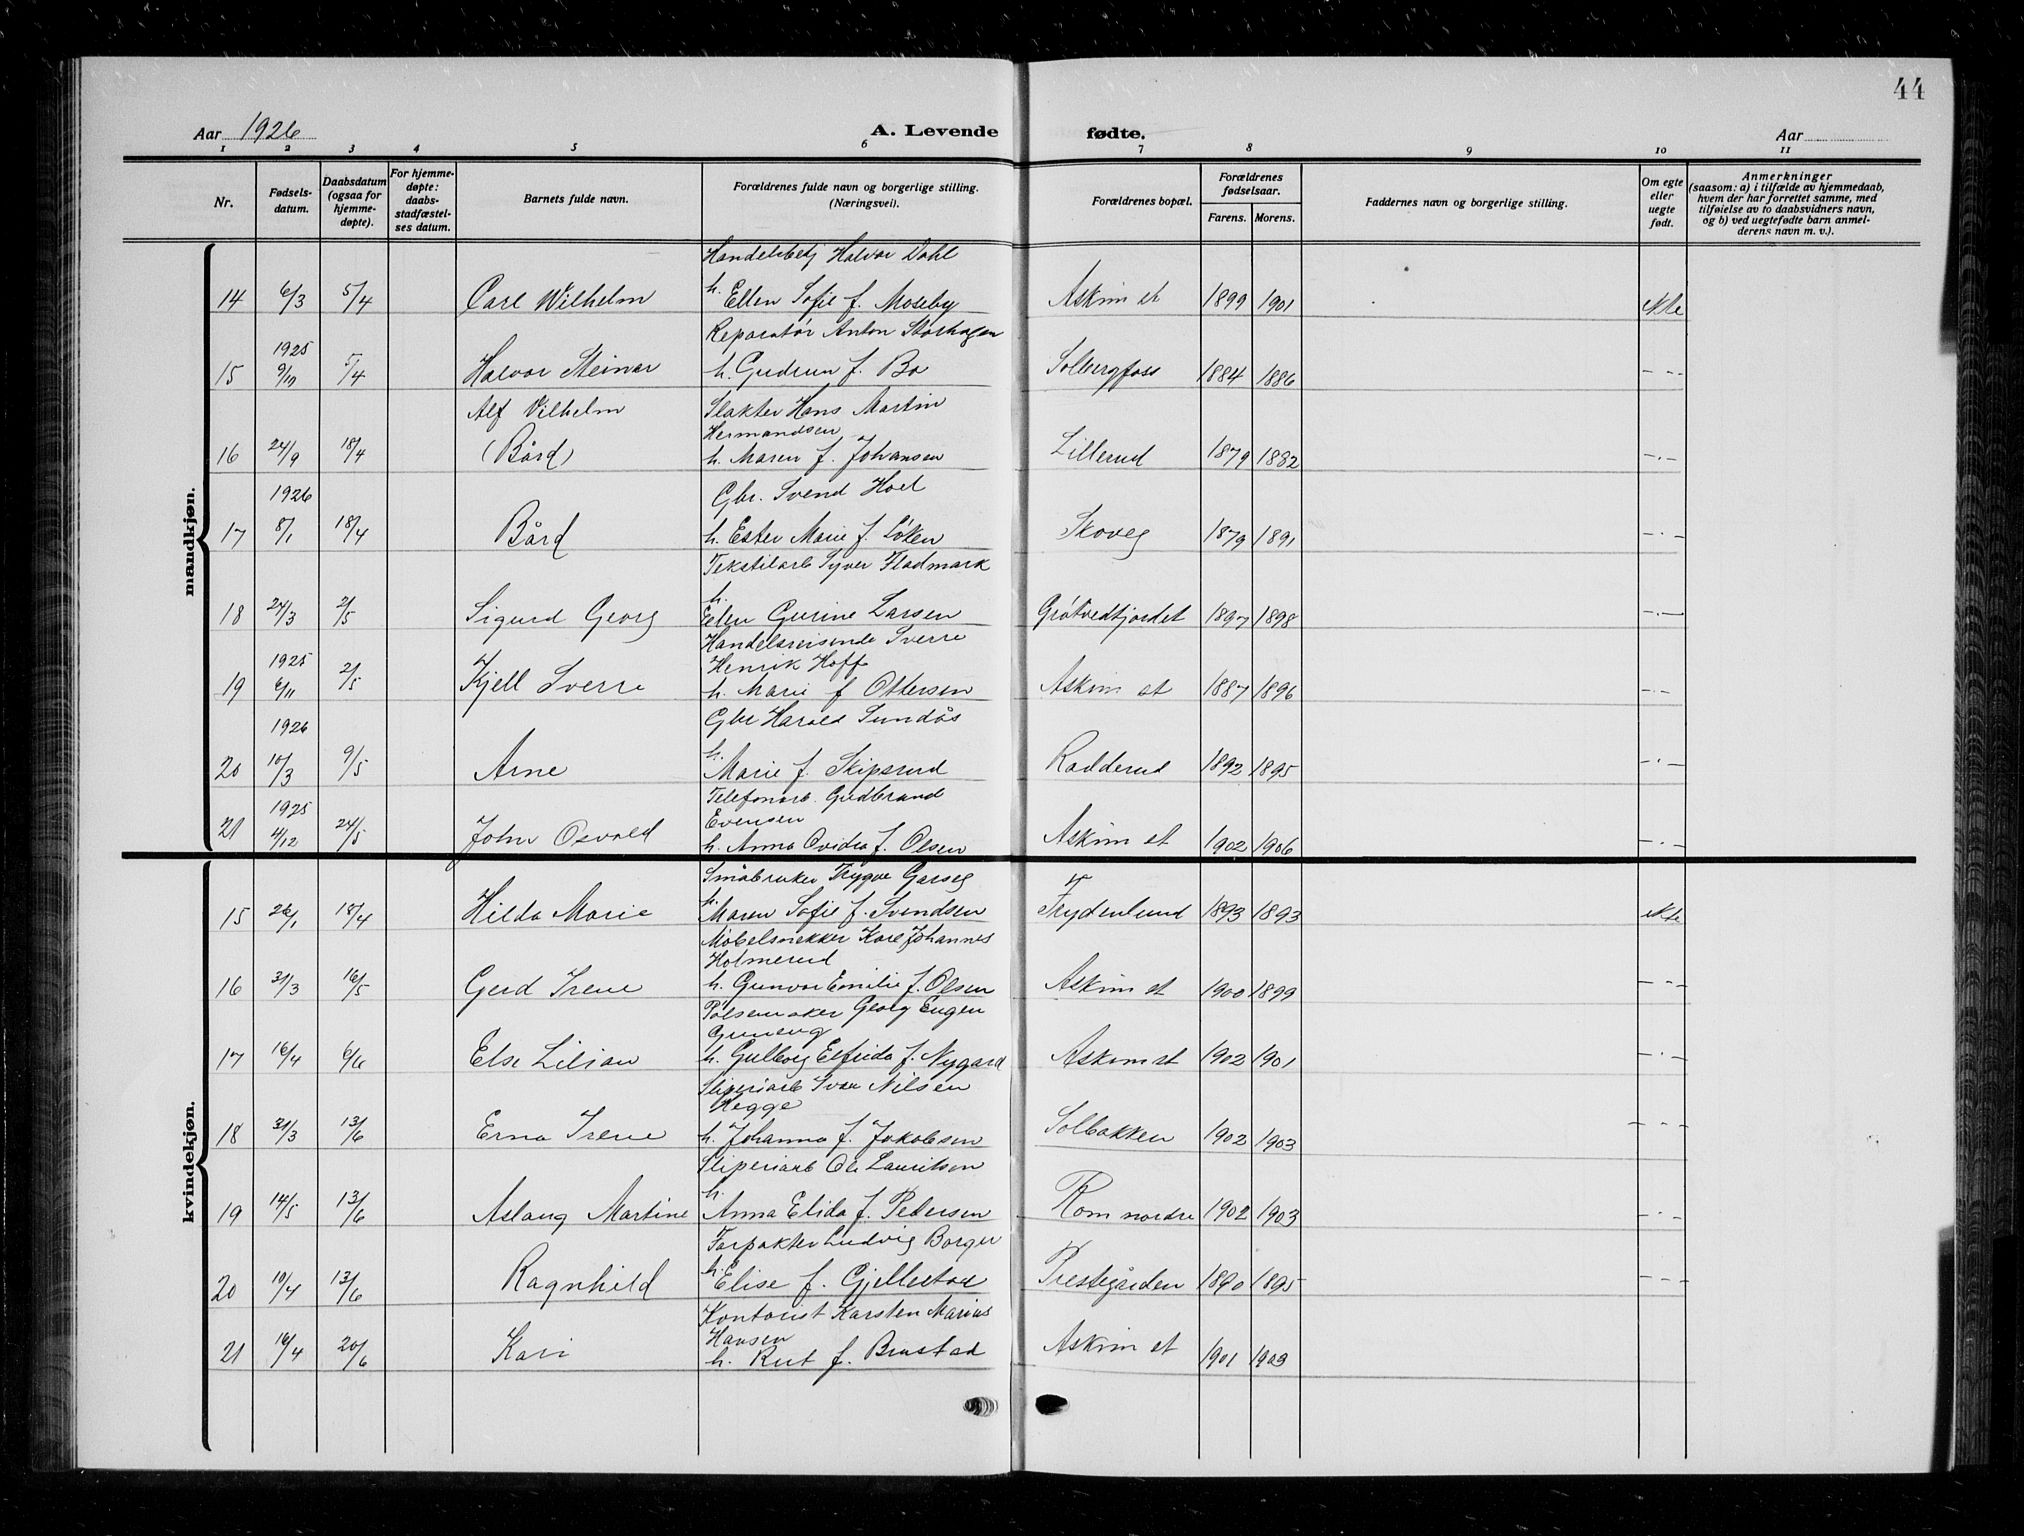 44
Aar 1926
A. Levende fødte.
Aar
1 2 3 4 5 6 7 8 9 10 11
Nr.
Fødsels-
datum.
Daabsdatum
(ogsaa for
hjemme-
døpte).
For hjemme-
døpte:
daabs-
stadfæstel-
ses datum.
Barnets fulde navn.
Forældrenes fulde navn og borgerlige stilling.
(Næringsvei).
Forældrenes bopæl.
Forældrenes
fødselsaar.
Farens. Morens.
Faddernes navn og borgerlige stilling.
Om egte
eller
uegte
født.
Anmerkninger
(saasom: a) i tilfælde av hjemmedaab,
hvem der har forrettet samme, med
tilføielse av to daabsvidners navn,
og b) ved uegtefødte barn anmel-
derens navn m. v.).
mandkjøn.
Handelsbetj Halvor Dahl
14 6/3 5/4 Carl Wilhelm h. Ellen Sofie f. Moseby Askim st 1899 1901 ekte
Reparatør Anton Storhagen
1925
15 9/10 5/4 Halvor Steinar h. Gudrun f. Bo Solbergfoss 1884 1886 - - -
Alf Vilhelm Slakter Hans Martin
Hermandsen
16 24/9 18/4 (Bård) h. Maren f. Johansen Lillerud 1879 1882 - . -
1926 Gbr. Svend Hoel
17 8/1 18/4 Bård h. Ester Marie f. Løken Skoveg 1879 1891 - . -
Tekstilarb Syver Fladmark
h.
18 24/3 2/5 Sigurd Georg Elen Gurine Larsen Grøtvedtjordet 1897 1898 - . -
Handelsreisende Sverre
1925 Henrik Hoff
19 6/11 2/5 Kjell Sverre h. Marie f Ottersen Askim st 1887 1896 - . -
1926 Gbr Harald Sundås
h.
20 10/3 9/5 Arne Marie f. Skipsrud Radderud 1892 1895 - . -
Telefonarb. Gudbrand
1925 Evensen
21 4/12 24/5 John Osvald h. Anna Ovidia f. Olsen Askim st 1902 1906 - . -
kvindekjøn.
Småbruker Trygve Garseg
h.
15 26/1 18/4 Hilda Marie Maren Sofie f. Svendsen Frydenlund 1893 1893 ekte
Møbelsnekker Kare Johannes
Holmerud
16 31/3 16/5 Gerd Irene h. Gunvor Emilie f. Olsen Askim st 1900 1899 - - -
Pølsemaker Georg Eugen
17 16/4 6/6 Else Lilian h. Gulborg Elfrida f. Nygard Askim st 1902 1901 - . -
Sliperiarb Ivar Nilsen
Hegge
18 31/3 13/6 Erna Irene h. Johanna f. Jakobsen Solbakken 1902 1903 - - -
Sliperiarb Ole Lauritsen
h.
19 14/5 13/6 Aslaug Martine Anna Elida f. Pedersen Rom nordre 1902 1903 - . -
Forpakter Ludvig Borger
h.
20 10/4 13/6 Ragnhild Elise f. Gjellestad Prestegården 1890 1895 - - -
Kontorist Karsten Marius
Hansen
21 16/4 20/6 Kari h. Rut f. Brustad Askim st 1901 1903